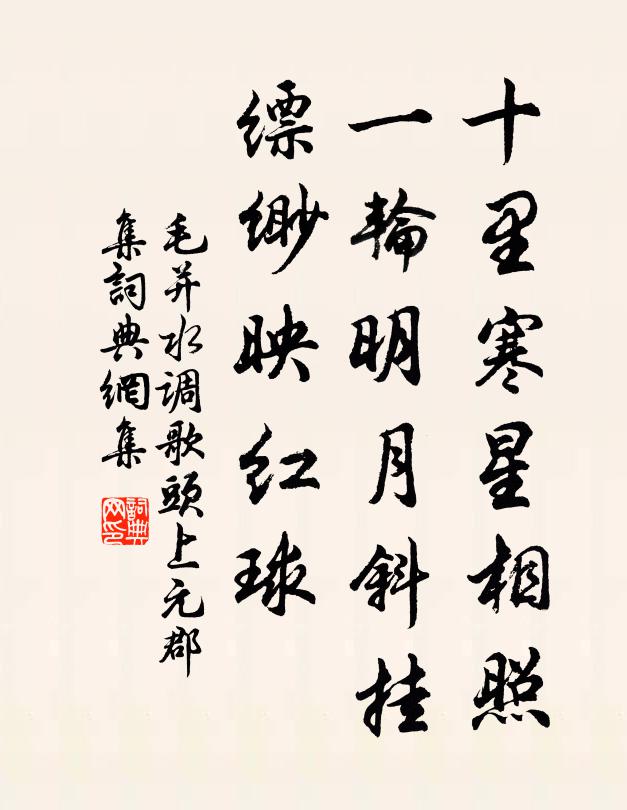 十里寒星相照
一輪明月斜挂
缥缈映红球
毛并水调歌頭上元郡
集詞典網集
詞典网印